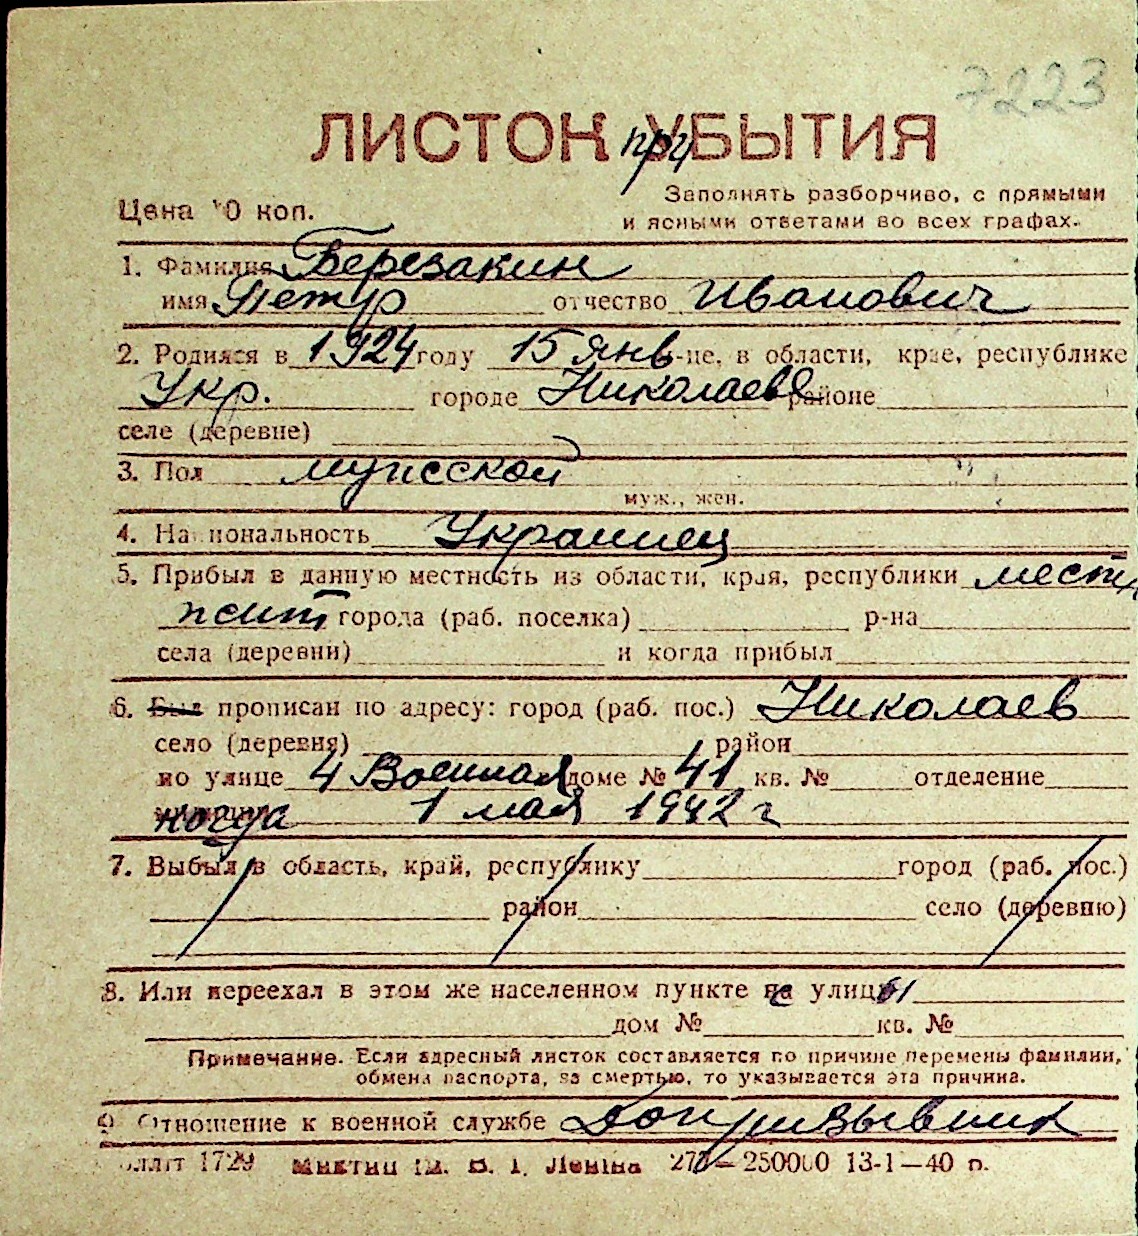 7223
ЛИСТОК при УБЫТИЯ
Цена 10 коп.
Заполнять разборчиво, с прямыми
и ясными ответами во всех графах.
1. Фамилия Березакин
имя Петр отчество Иванович
2. Родился в 1924 году 15 янв -це, в области, крае, республике
Укр. городе Николаеве районе
селе (деревне)
3. Пол мужской
муж., жен.
4. Национальность Украинец
5. Прибыл в данную местность из области, края, республики местн
жит города (раб. поселка) р-на
села (деревни) и когда прибыл
6. Был прописан по адресу: город (раб. пос.) Николаев
село (деревня) район
по улице 4 Военная доме № 41 кв. № отделение
когда 1 мая 1942 г
7. Выбыл в область, край, республику город (раб. пос.)
район село (деревню)
8. Или переехал в этом же населенном пункте с улицы
дом № кв. №
Примечание. Если адресный листок составляется по причине перемены фамилии,
обмена паспорта, за смертью, то указывается эта причина.
9 Отношение к военной службе Допризывник
1729 Леніна 27 — 250000 13-1—40 р.